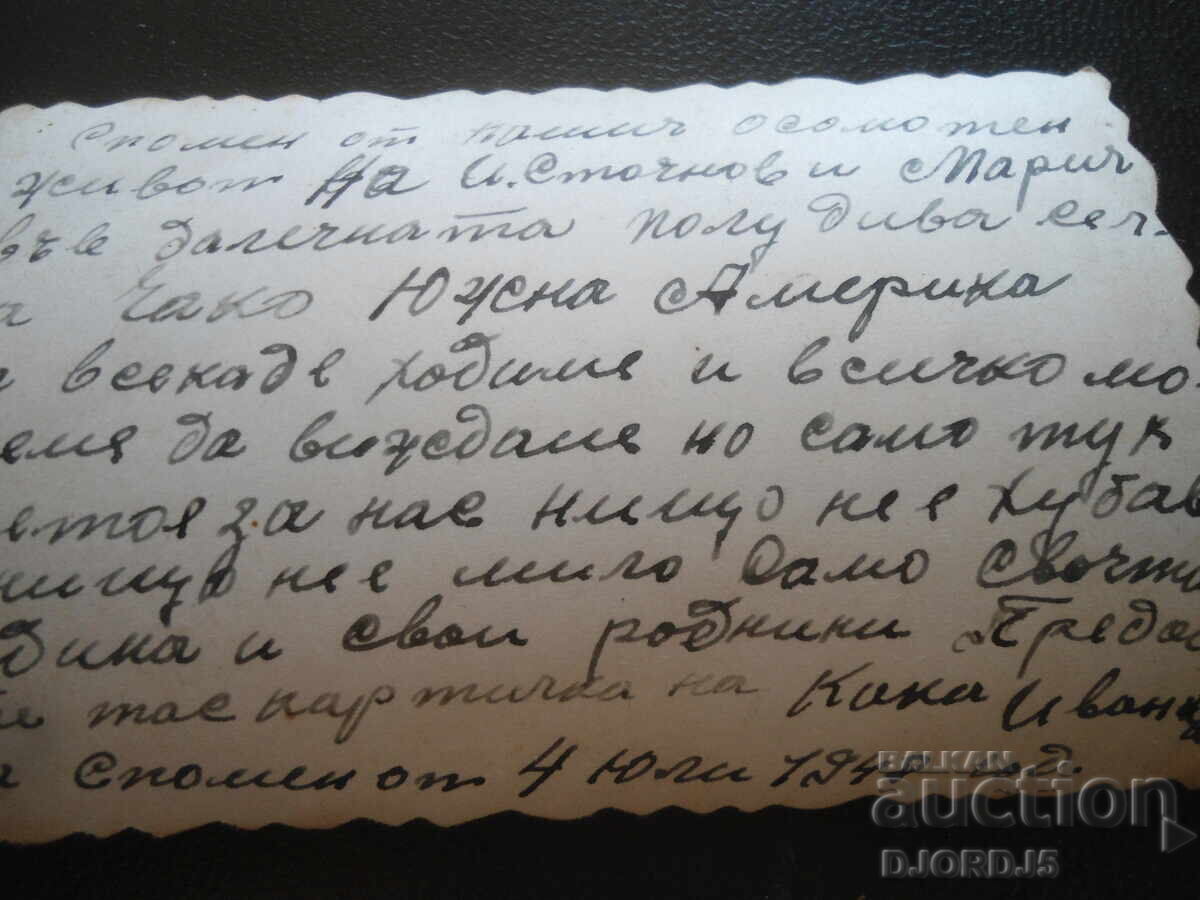 Спомен от нашия осомотен
живот На И. Стоянов и Мария
във далечната полу дива сея-
а Чако Южна Америка
всекаде ходиме и всичко мо-
еме да виждаме но само тук
етое за нас нищо не е хубав
нищо не е мило само своята
дина и свои роднини Предо
тас картичка на Кака Иванц
а Спомен от 4 Юли 19 год
BALKAN
auction
DJORDJ5